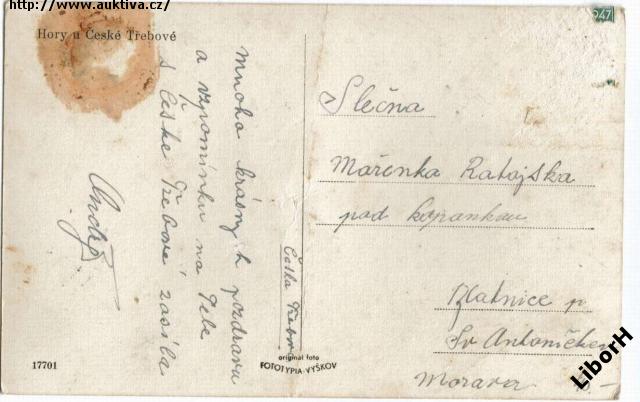 http://www.auktiva.cz/
Hory u České Třebové
mnoho krásných pozdravu
a vzpomínku na Tebe
z České Třebové zasílá
Česká Třebová
17701
original foto
FOTOTYPIA-VYŠKOV
947
Slečna
Mařenka Ratajska
pod kopankau
Blatnice p
Sv Antoníčkem
Morava
LiborH